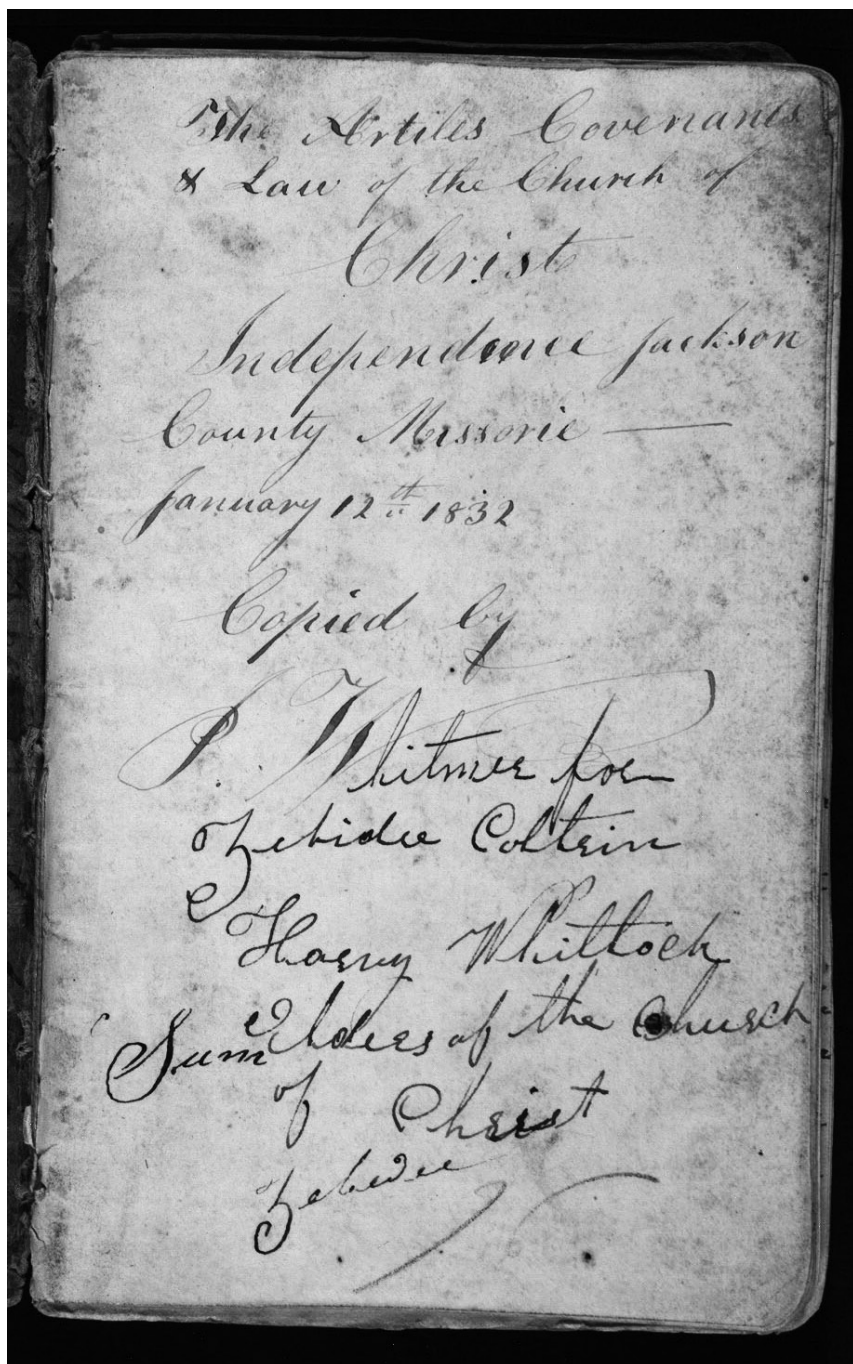 The Artiles Covenants
& Law of the Church of
Christ
Independence Jackson
County Missorie —
January 12th 1832
Copied by
P. Whitmer for
Zebidee Coltrin
Harvy Whitlock
Elders of the Church
of Christ
Zebedee